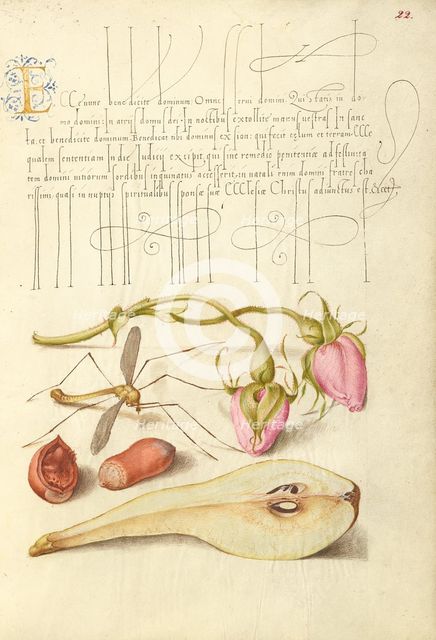 22.
Ecce nunc benedicite dominum: Omnes serui domini. Qui statis in do
mo domini: in atrijs domus dei: in noctibus extollite manus vestras in sanc
ta, et benedicite dominum. Benedicat tibi dominus ex sion: qui fecit celum et terram. Ille
qualem sententiam in die Judicij excipit, qui sine remedio penitentiae ad festiuita
tem domini minorum sordibus inquinatus accesserit, in natali enim domini fratres cha
rissimi, quasi in nuptijs spiritualibus sponsae suae Ecclesiae Christus adiunctus est,
Heritage